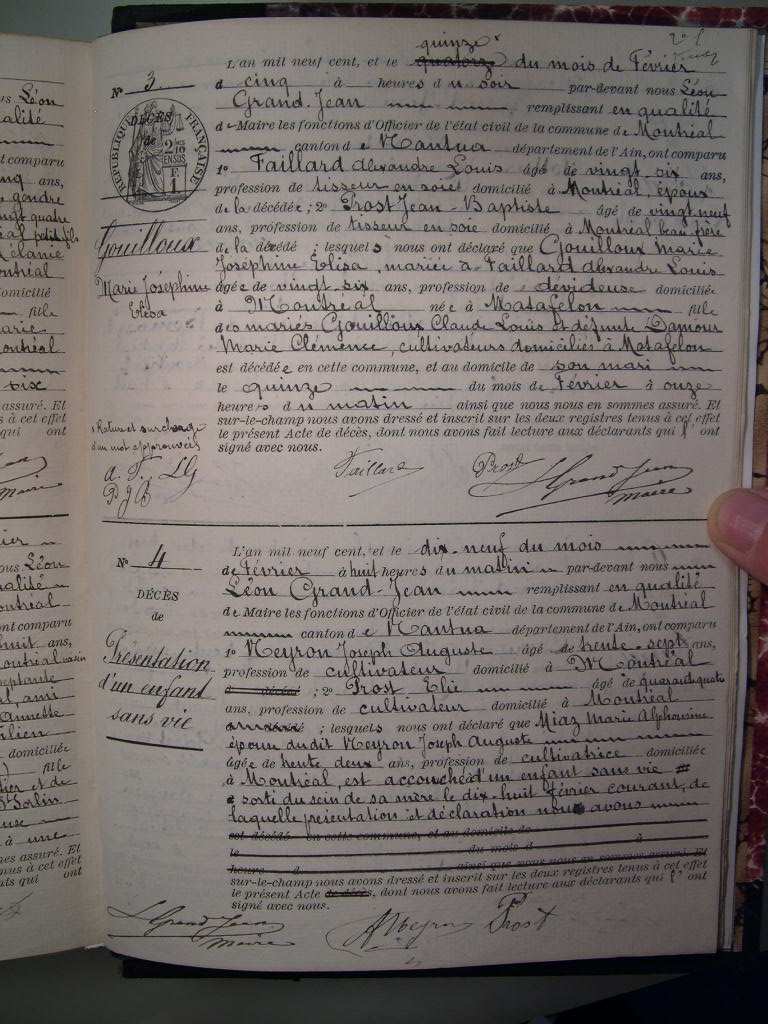 us Léon
qualité
ont comparu
cinq ans,
gendre
vingt quatre
petit fils
Mélanie
Montréal
domicilié
fille
Marie
Montréal
six
assuré. Et
tenus à cet effet
qui ont
Maire
us Léon
qualité
Montréal
ont comparu
huit ans,
Montréal voisin
septante
al, ami
annette
domiciliée
fille
tier et de
St Sorlin
à une
es assuré. Et
enus à cet effet
qui ont
quinze
L'an mil neuf cent, et le quatorze du mois de Février
N° 3
à cinq à heures du soir par-devant nous Léon
Grand-Jean remplissant en qualité
DÉCÈS
de
RÉPUBLIQUE FRANÇAISE
2/10 EN SUS
de Maire les fonctions d'Officier de l'état civil de la commune de Montréal
canton de Nantua département de l'Ain, ont comparu
1° Faillard Alexandre Louis âgé de vingt-six ans,
profession de tisseur en soie domicilié à Montréal, époux
de la décédée ; 2° Prost Jean-Baptiste âgé de vingt neuf
ans, profession de tisseur en soie domicilié à Montréal beau frère
Gouilloux
Marie Joséphine
Elisa
de la décédé ; lesquels nous ont déclaré que Gouilloux Marie
Joséphine Elisa, mariée à Faillard Alexandre Louis
âgée de vingt-six ans, profession de dévideuse domiciliée
à Montréal née à Matafelon fille
des mariés Gouilloux Claude Louis et défunte Damour
Marie Clémence, cultivateurs domiciliés à Matafelon
est décédée en cette commune, et au domicile de son mari
le quinze du mois de Février à onze
heures du matin ainsi que nous nous en sommes assuré. Et
sur-le-champ nous avons dressé et inscrit sur les deux registres tenus à cet effet
le présent Acte de décès, dont nous avons fait lecture aux déclarants qui l'ont
signé avec nous.
Rature et surcharge
d'un mot approuvés
A. F. LG
P J B
Faillard Prost L Grand Jean
Maire
N° 4
DÉCÈS
de
Présentation
d'un enfant
sans vie
L'an mil neuf cent, et le dix-neuf du mois
de Février à huit heures du matin par-devant nous
Léon Grand-Jean remplissant en qualité
de Maire les fonctions d'Officier de l'état civil de la commune de Montréal
canton de Nantua département de l'Ain, ont comparu
1° Neyron Joseph Auguste âgé de trente-sept ans,
profession de cultivateur domicilié à Montréal
; 2° Prost Elie âgé de
ans, profession de cultivateur domicilié à Montréal
; lesquels nous ont déclaré que Miaz Marie Alphonsine
épouse du dit Neyron Joseph Auguste
âgée de trente deux ans, profession de cultivatrice domiciliée
à Montréal, est accouchée d'un enfant sans vie
sorti du sein de sa mère le dix-huit février courant, de
laquelle présentation et déclaration nous avons
est décédé en cette commune, et au domicile de
le du mois d à
heures d ainsi que nous nous en sommes assuré. Et
sur-le-champ nous avons dressé et inscrit sur les deux registres tenus à cet effet
le présent Acte de décès, dont nous avons fait lecture aux déclarants qui l'ont
signé avec nous.
L Grand Jean
Maire
Neyron Prost